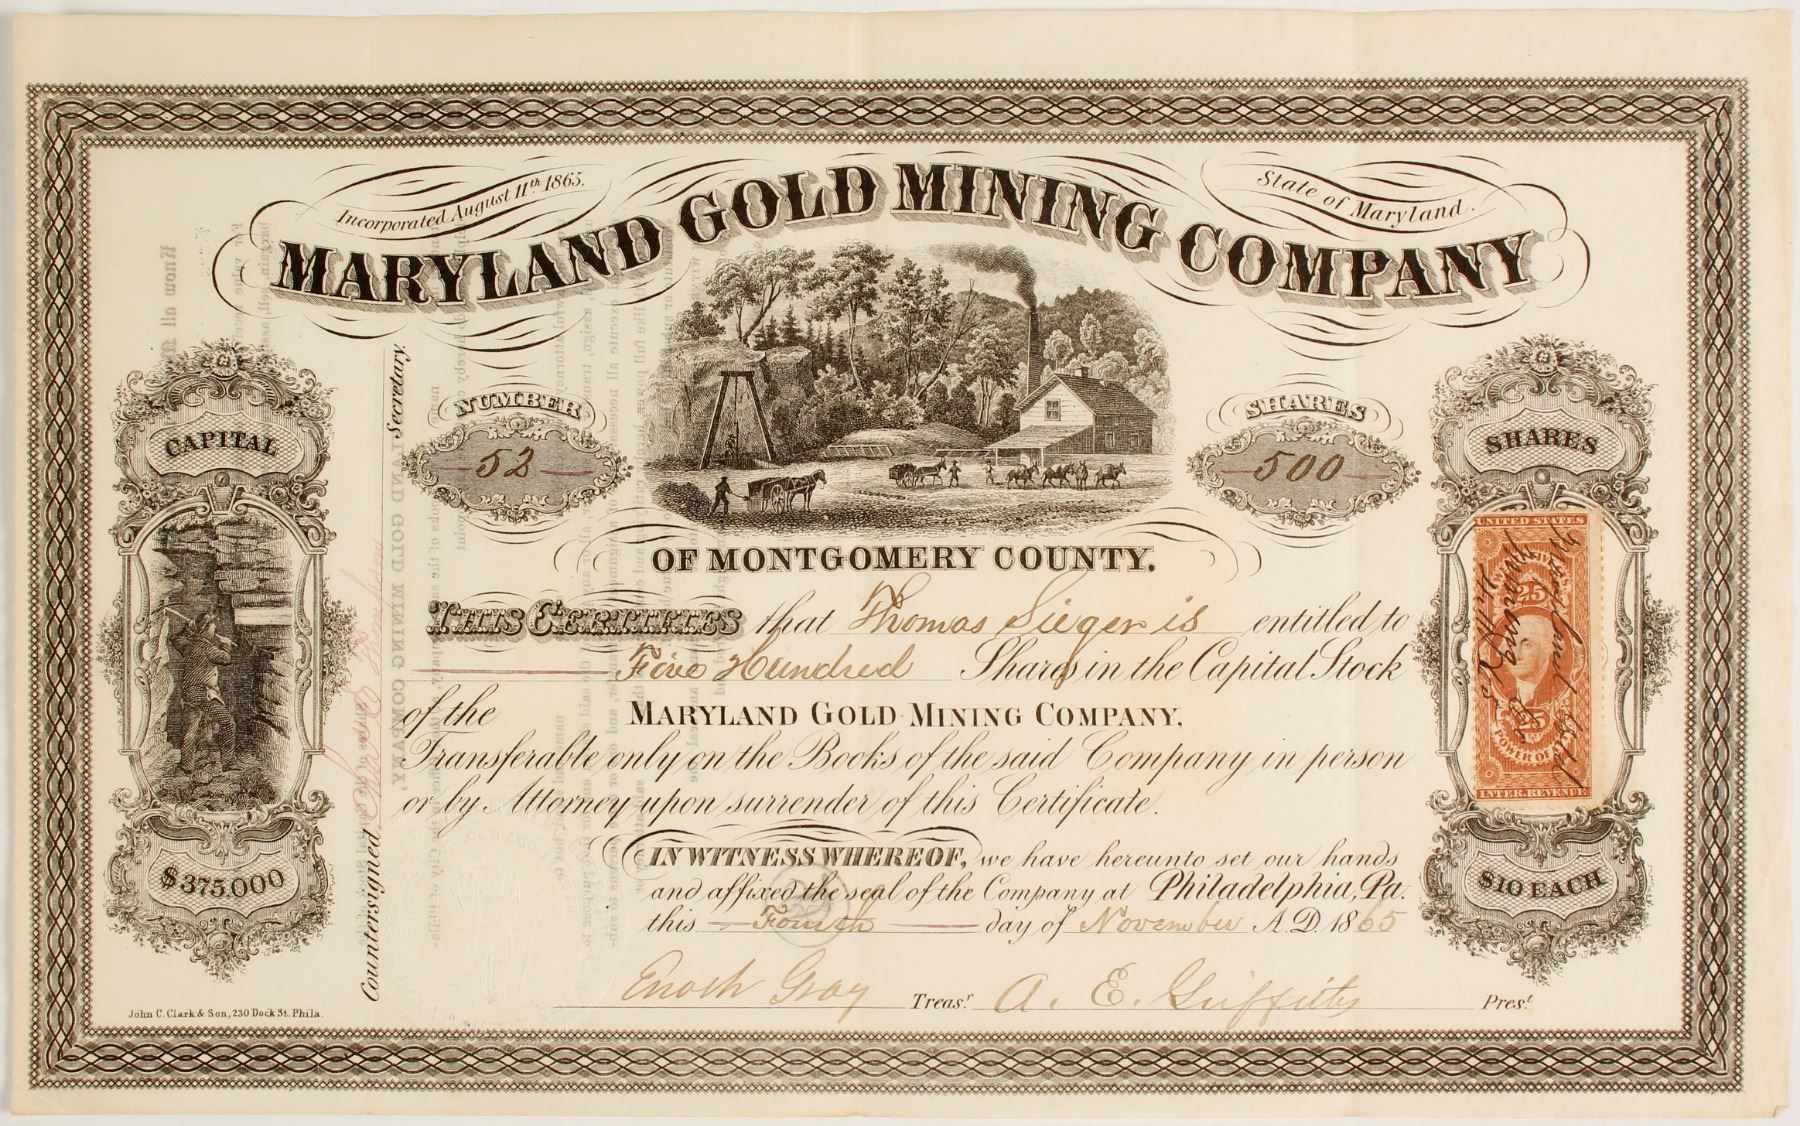 Incorporated August 11th 1865.
State of Maryland.
MARYLAND GOLD MINING COMPANY
NUMBER
52
SHARES
500
CAPITAL
$375.000
SHARES
$10 EACH
OF MONTGOMERY COUNTY.
THIS CERTIFIES that Thomas Sieger is entitled to
Five Hundred Shares in the Capital Stock
of the MARYLAND GOLD MINING COMPANY,
Transferable only on the Books of the said Company in person
or by Attorney upon surrender of this Certificate.
IN WITNESS WHEREOF, we have hereunto set our hands
and affixed the seal of the Company at Philadelphia, Pa.
this Fourth day of November A.D. 1865
Enoch Gray Treasr. A. E. Griffitts Prest.
Countersigned
Secretary.
UNITED STATES
25
25
POWER OF
INTER. REVENUE
John C. Clark & Son, 230 Dock St. Phila.